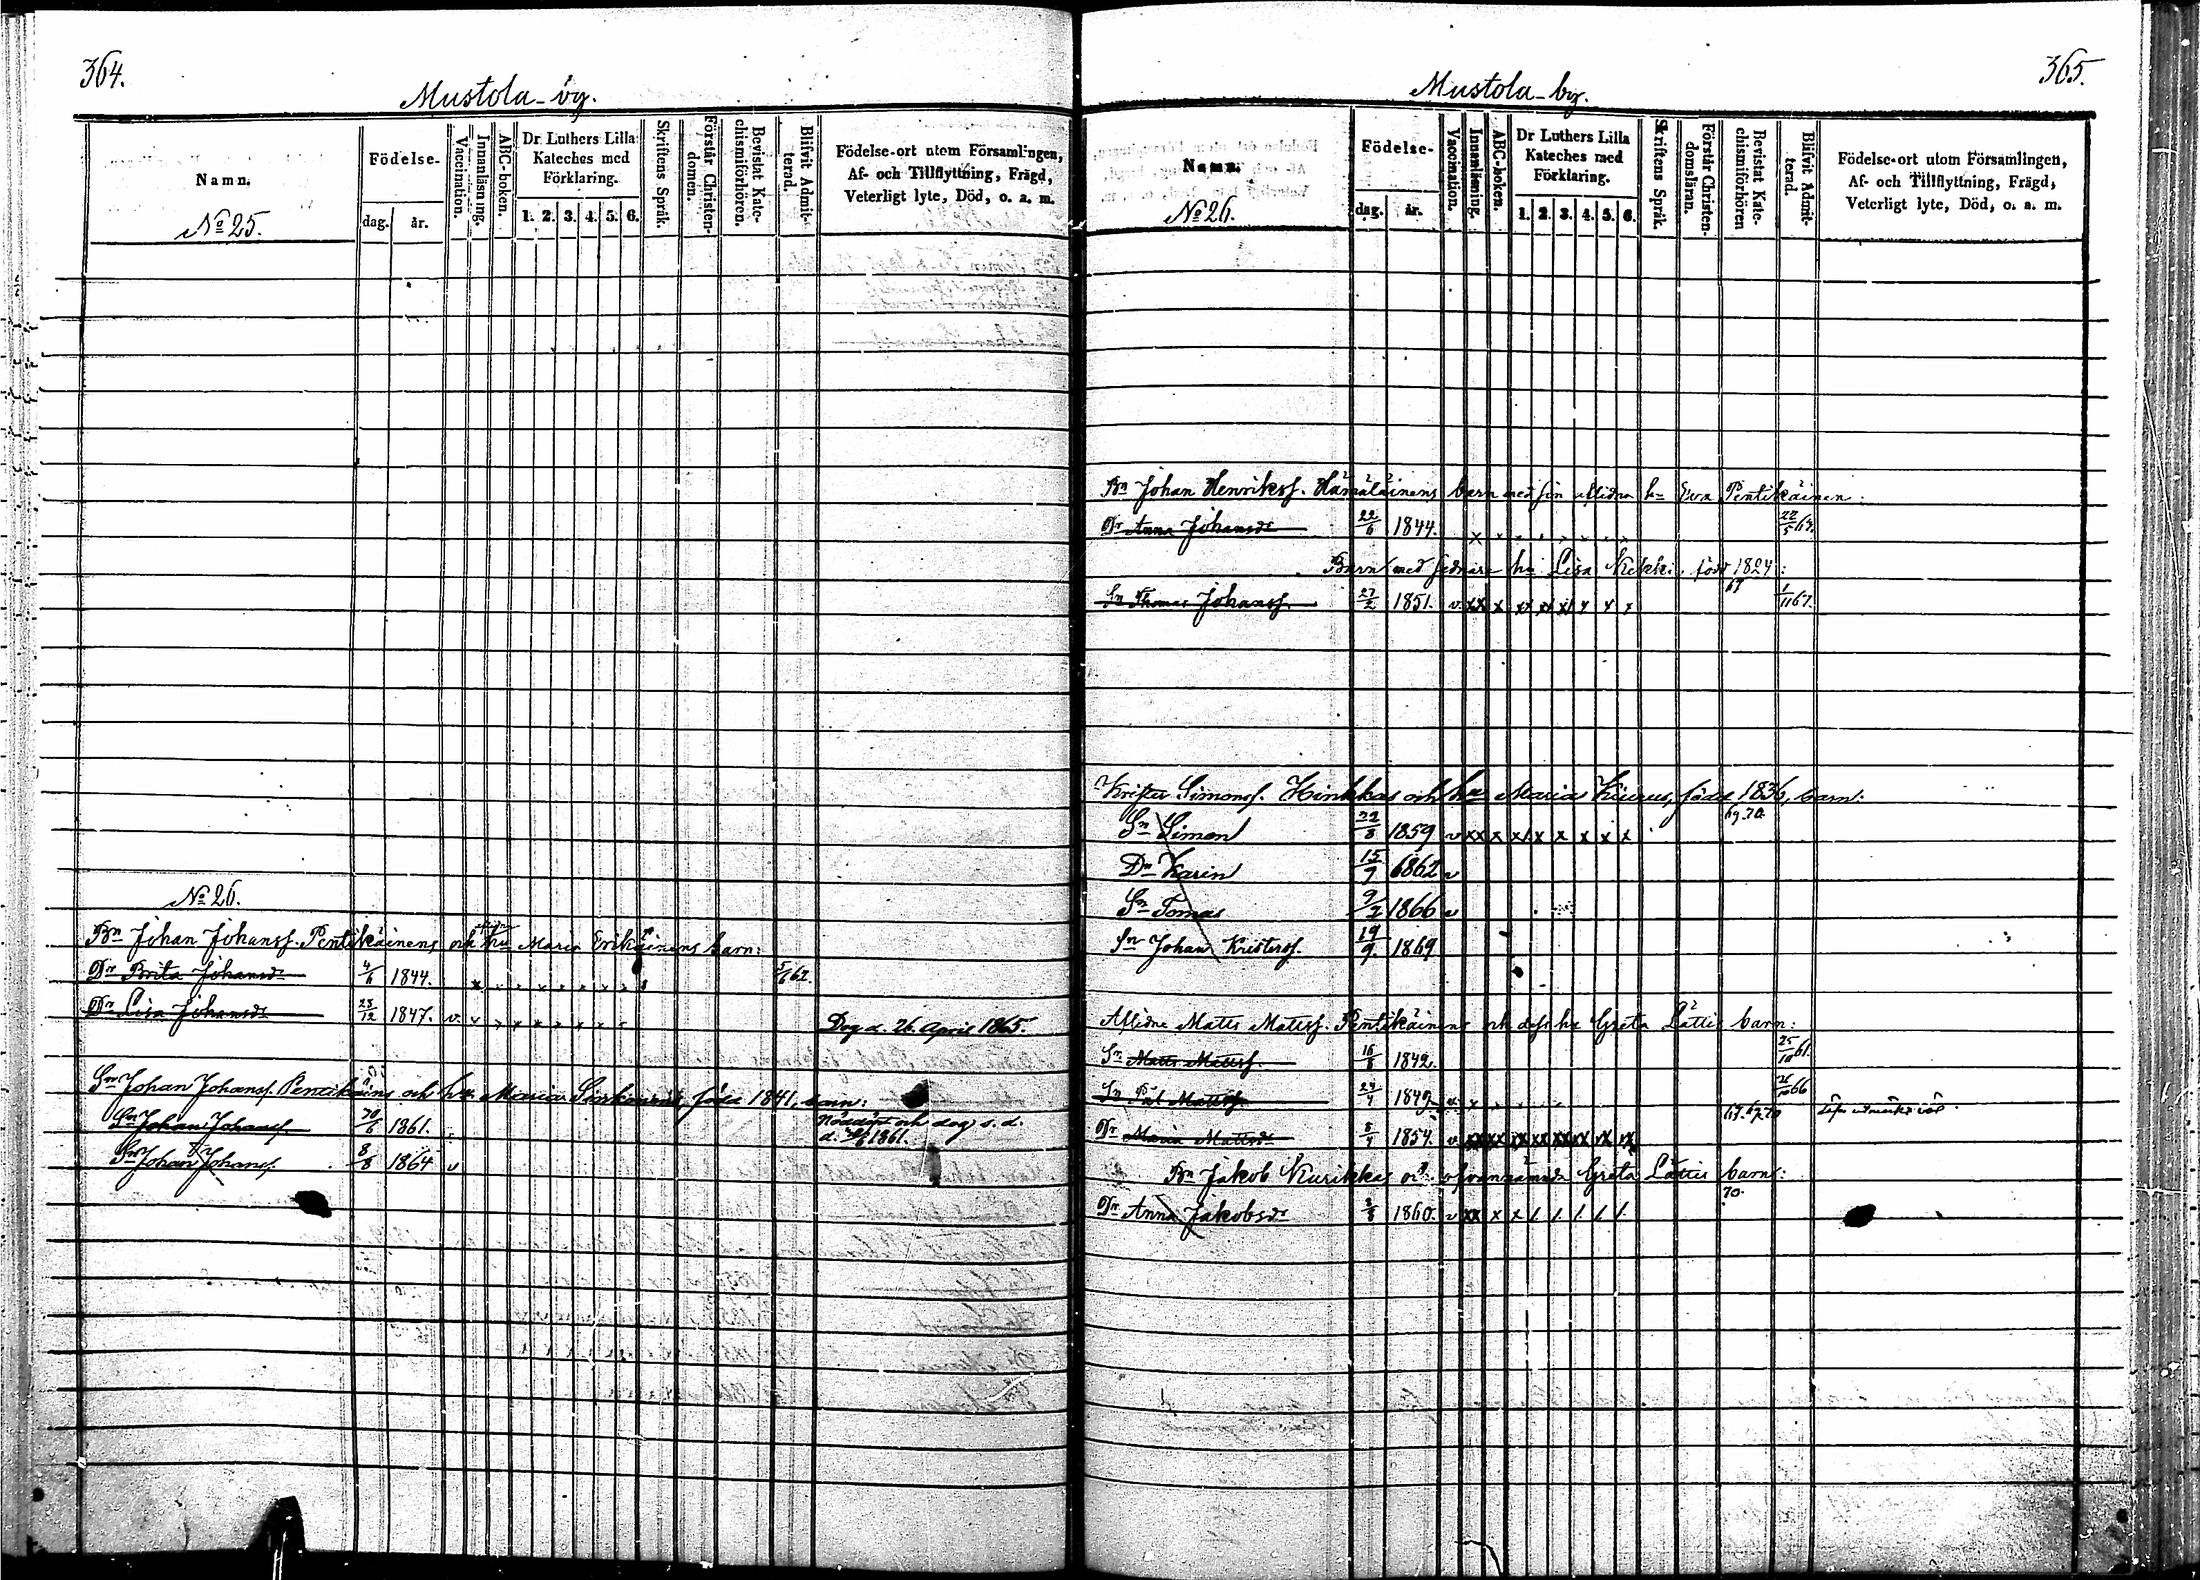 364.
Mustola-by.
Namn.
No 25.
Födelse-
dag. år.
Vaccination.
Innanläsning.
ABC-boken.
Dr Luthers Lilla
Kateches med
Förklaring.
1. 2. 3. 4. 5. 6.
Skriftens Språk.
Förstår Christen-
domen.
Bevistat Kate-
chismiförhören.
Blifvit Admit-
terad.
Födelse-ort utom Församlingen,
Af- och Tillflyttning, Frägd,
Veterligt lyte, Död, o. a. m.
No 26.
Bn Johan Johanss. Pentikäinens och hu Maria Erikäinens barn:
Dr Brita Johansdr 4/6 1844. x 5/6 62.
Dr Lisa Johansdr 23/12 1847. v. x x x x x x x Dog d. 26 April 1865.
Sn Johan Johanss. Pentikäins och hu Maria född 1841, barn:
Sn Johan Johanss. 1861. Nöddöpt och dog s. d.
1861.
Sn Johan Johanss. 8/8 1864 v
365.
Mustola-by.
Namn.
No 26.
Födelse-
dag. år.
Vaccination.
Innanläsning.
ABC-boken.
Dr Luthers Lilla
Kateches med
Förklaring.
1. 2. 3. 4. 5. 6.
Skriftens Språk.
Förstår Christen-
domsläran.
Bevistat Kate-
chismiförhören
Blifvit Admit-
terad.
Födelse-ort utom Församlingen,
Af- och Tillflyttning, Frägd,
Veterligt lyte, Död, o. a. m.
Bn Johan Henrikss. Hämäläinens barn med sin aflidna hu Eva Pentikäinen:
Dr Anna Johansdr 22/6 1844. x 22/5 67.
Barn med sednare hu Lisa Kekki, född 1824:
67
Sn Thomas Johanss. 27/2 1851. v. xx x xx xx x/ x x x 1/11 67.
Krister Simonss. Hinkkas och hu Marias Kiurus, född 1836, barn:
69. 70.
Sn Simon 22/8 1859 v xx x x/ x x x x x
Dr Karin 15/9 1862 v
Sn Tomas 9/2 1866 v
Sn Johan Kristerss. 19/9. 1869
Aflidne Matts Mattss. Pentikäinens och dess hu Greta Lättis barn:
Sn Matts Mattss. 16/8 1842. 25/10 61.
Sn Pål Mattss. 24/7 1849. v. x 66
67. 69. 70
Dr Maria Mattsdr 8/4 1854. v.
Bn Jakob Kurikkas och ofvannämnda Greta Lättis barn:
70.
Dr Anna Jakobsdr 3/8 1860. v xx x x /. /. /. /. /.